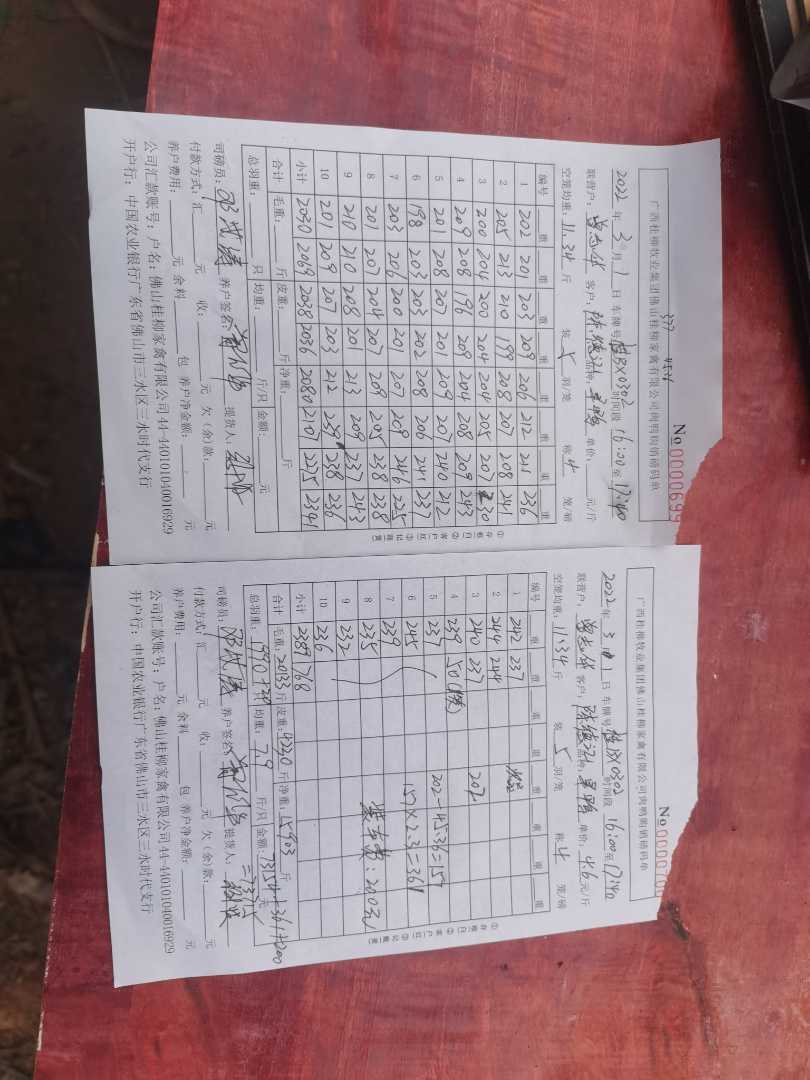 广西桂柳牧业集团佛山桂柳家禽有限公司肉鸭购销磅码单
No 0000699
377 4534
2022年3月1日 车牌号 桂BX0302 时间段 16:00至17:40
联营户: 客户: 陈德 品种: 旱鸭 单价: 元/斤
空笼均重: 11.34斤 装 羽/笼 称4笼/磅
编号 重 重 重 重 重 重 重 重
1 202 201 203 209 206 212 211 236
2 205 213 210 199 208 207 208 241
3 200 204 200 204 204 205 207 230
4 209 208 196 208 204 208 209 243
5 201 208 207 201 209 207 240 212
6 198 203 203 202 208 206 241 237
7 203 206 200 201 207 209 246 225
8 201 207 204 207 209 205 238 238
9 210 210 208 201 213 209 237 243
10 201 209 207 203 212 239 238 236
小计 2030 2069 2038 2036 2080 2107 2225 2341
合计 毛重: 斤 皮重: 斤 净重: 斤
总羽重: 只 均重: 斤/只 金额: 元
司磅员: 养户签名: 提货人:
付款方式: 汇 元 收: 元 欠(余)款: 元
养户费用: 元 余料 包 养户净金额: 元
公司汇款账号: 户名: 佛山桂柳家禽有限公司 44-440101040016929
开户行: 中国农业银行广东省佛山市三水区三水时代支行
①存根(白) ②客户(红) ③记账(黄)
广西桂柳牧业集团佛山桂柳家禽有限公司肉鸭购销磅码单
No 0000700
2022年3月1日 车牌号 桂BX0302 时间段 16:00至17:40
联营户: 客户: 陈德 品种: 旱鸭 单价: 4.6元/斤
空笼均重: 11.34斤 装5羽/笼 称4笼/磅
编号 重 重 重 重 重 重 重 重
1 242 237
2 244 244
3 240 237 202
4 239 50
5 237 202-45.36=157
6 245 157×2.3=361
7 239
8 235 装车费:200元
9 232
10 236
小计 2389 768
合计 毛重: 20133斤 皮重: 4230斤 净重: 15903斤
总羽重: 只 均重: 7.9斤/只 金额: 73154+361+200元
司磅员: 养户签名: 提货人:
付款方式: 汇 元 收: 元 欠(余)款: 元
养户费用: 元 余料 包 养户净金额: 元
公司汇款账号: 户名: 佛山桂柳家禽有限公司 44-440101040016929
开户行: 中国农业银行广东省佛山市三水区三水时代支行
①存根(白) ②客户(红) ③记账(黄)